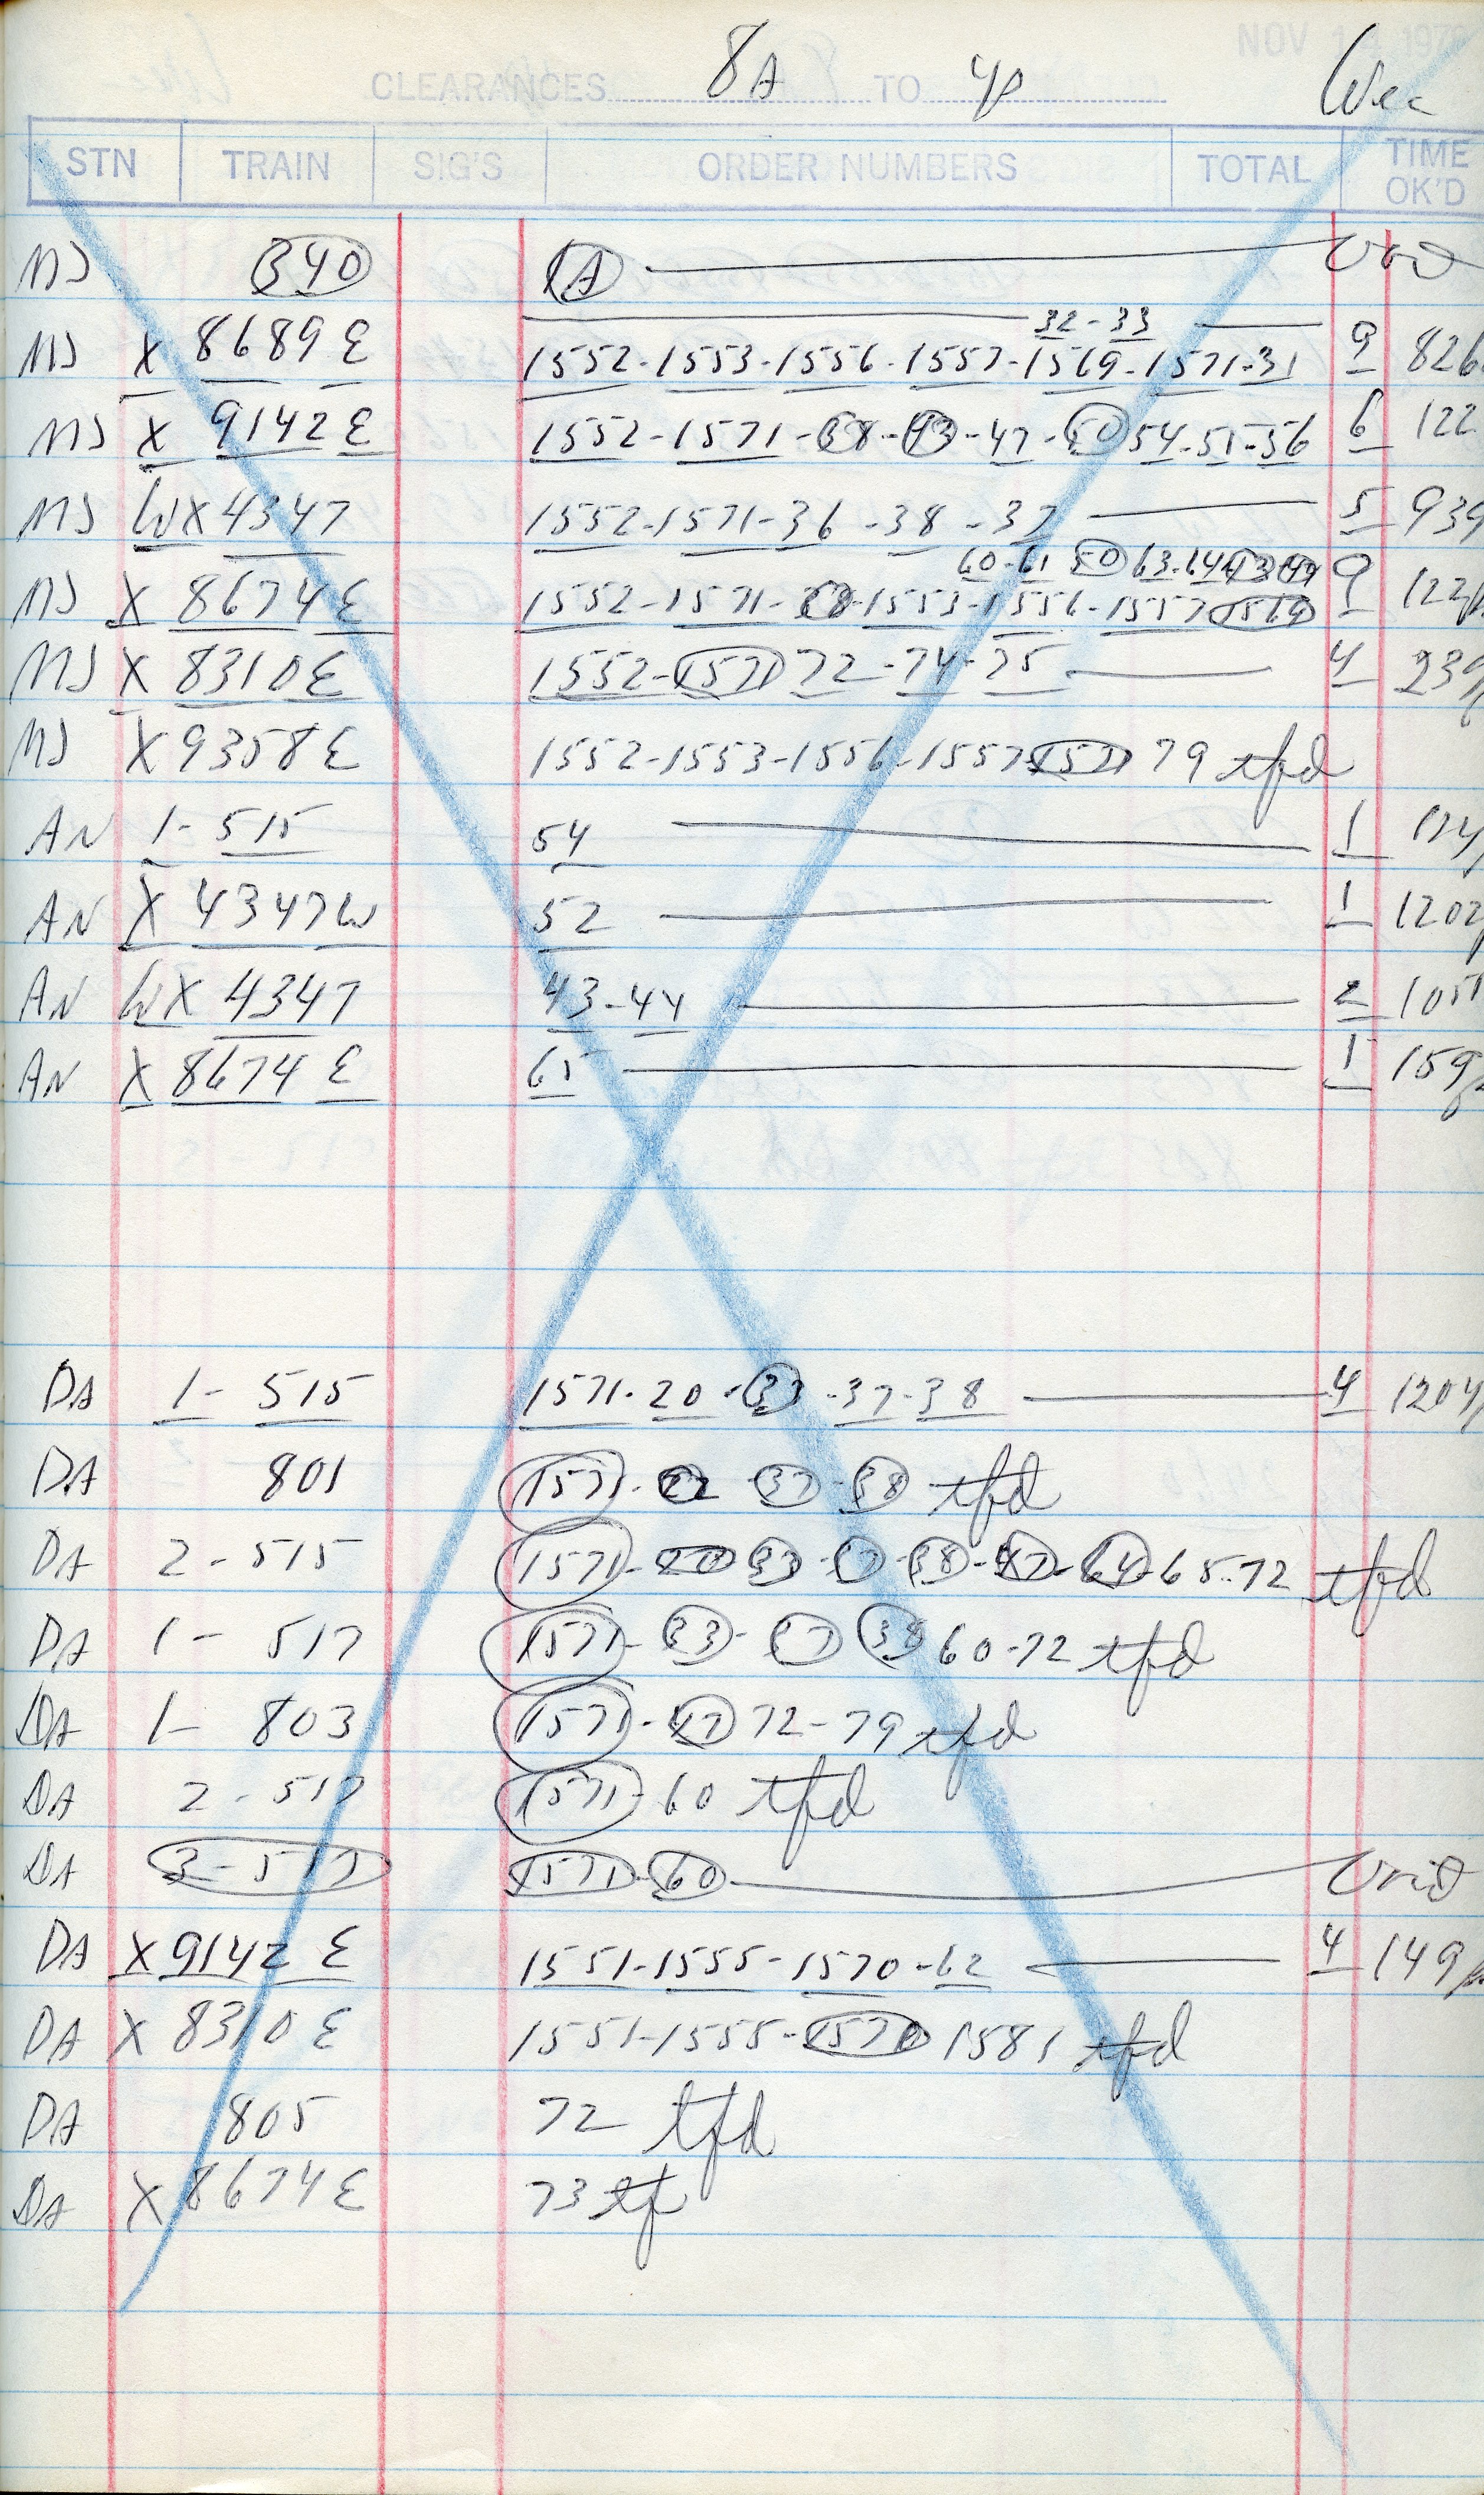 NOV 14 197
CLEARANCES 8A TO 4P
STN TRAIN SIG'S ORDER NUMBERS TOTAL TIME OK'D
MS 340 1A Void
32-33
MS X 8689 E 1552-1553-1556-1557-1569-1571-31 9 826
MS X 9142 E 1552-1571-38-43-47-50 54-51-56 6 122
MS WX 4347 1552-1571-36-38-37 5 939
60-61 50 63-64 43 49
MS X 8674 E 1552-1571-38-1553-1556-1557 1569 9 122p
MS X 8310 E 1552-1571 72-74-75 4 239p
MS X 9358 E 1552-1553-1556-1557 1571 79 tfd
AN 1-515 54 1
AN X 4347 W 52 1 1202p
AN WX 4347 43-44 2 105
AN X 8674 E 65 1 159p
DA 1-515 1571-20-33-37-38 4 1204p
DA 801 1571-22 37-38 tfd
DA 2-515 1571-20 33-37-38-47-64-65-72 tfd
DA 1-517 1571-33-37 38 60-72 tfd
DA 1-803 1571-47 72-79 tfd
DA 2-517 1571-60 tfd
DA 3-517 1571-60 Void
DA X 9142 E 1551-1555-1570-62 4 149p
DA X 8310 E 1551-1555-1570 1581 tfd
DA 805 72 tfd
DA X 8674 E 73 tf